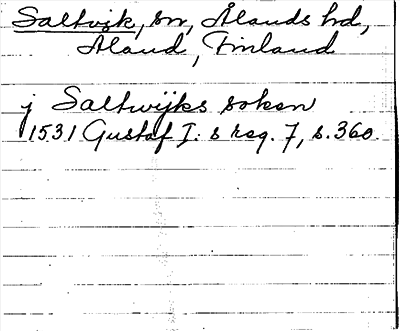 Saltvik, sn, Ålands hd,
Åland, Finland
j Saltwijks soken
1531 Gustaf I:s reg. 7, s. 360.